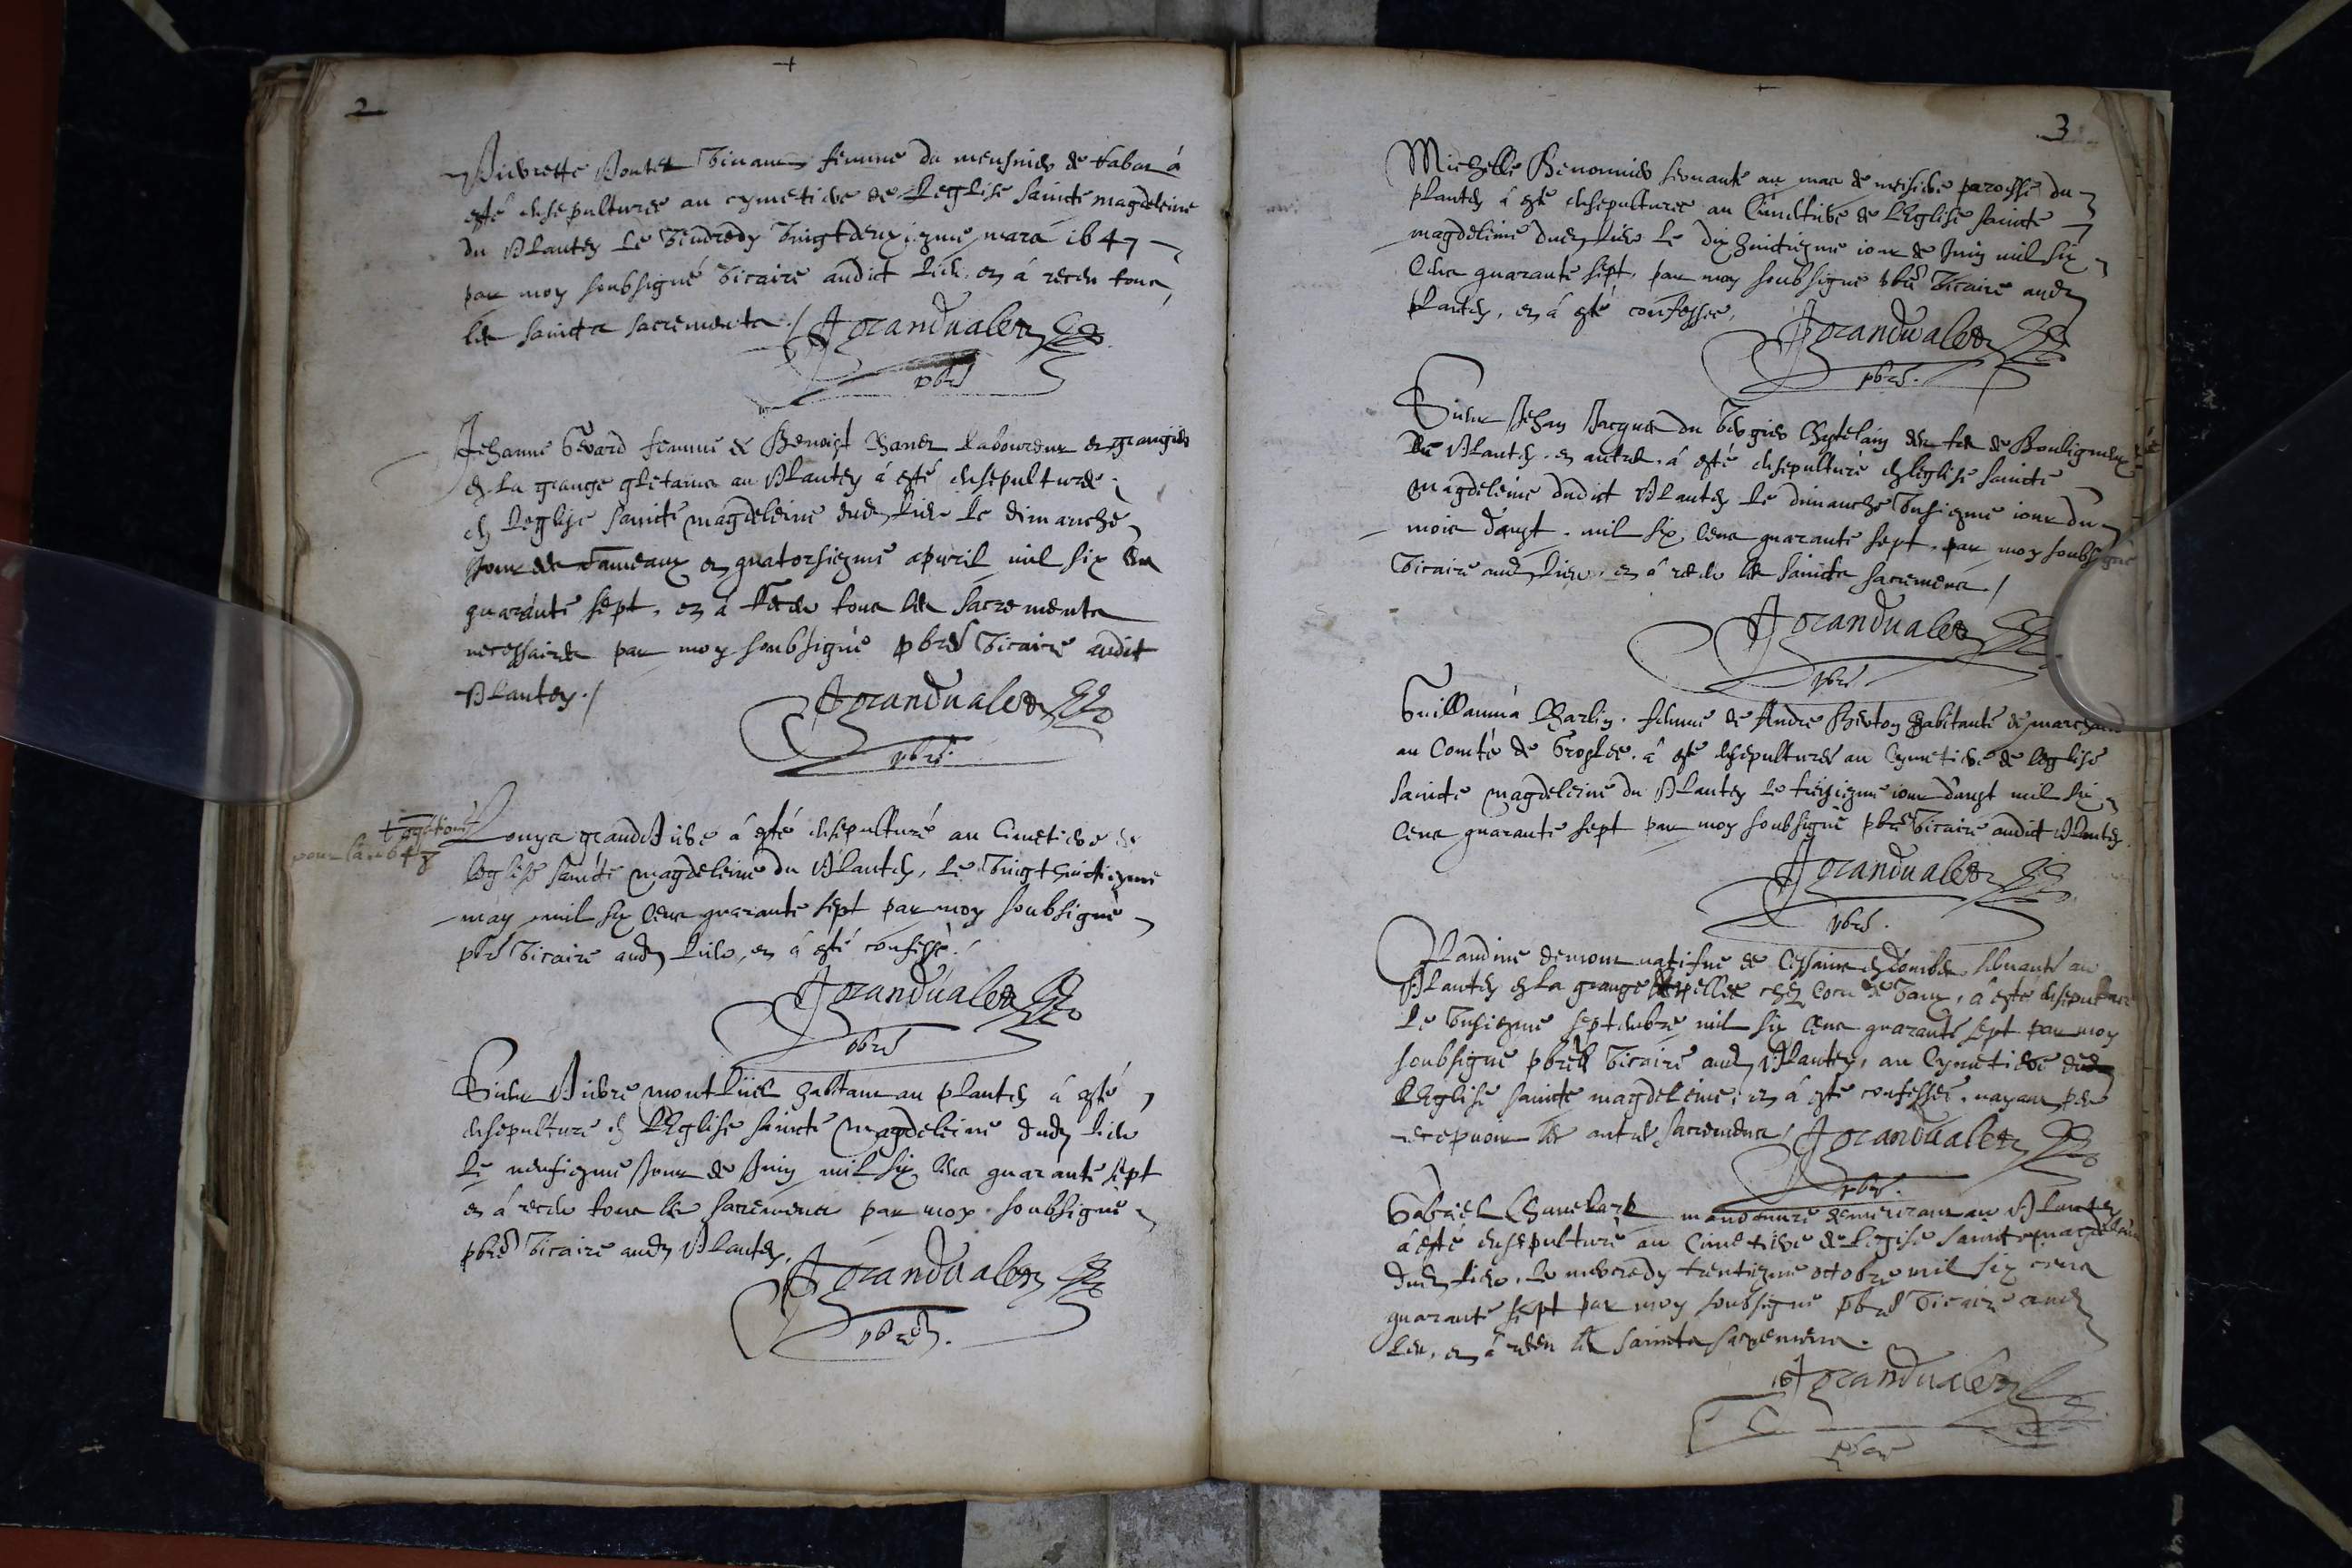 2
esté ensepulturee au cymetiere de Leglise saincte magdeleine
du Plantey Le Vendredy Vingtdeuxiezme mars 1647
par moy soubsigné Vicaire audict lieu et á receu tous
les saincts sacrements /
JGrandvalet
pbre
Jehanne Gerard femme de Benoist laboureur et grangier
en la grange au Plantey á esté ensepulturee
en leglise saincte magdeleine dudt lieu le dimanche
jour des rameaux et quatorsiezme apvril mil six cens
quarante sept, et á receu tous les sacrements
necessaires par moy soubsigné pbre Vicaire audit
Plantey ./
JGrandvalet
pbre
Louys á esté ensepulturé au Cimetiere de
leglise saincte magdeleine du Plantey, le Vingthuictiezme
may mil six cens quarante sept par moy soubsigné
pbre Vicaire audt lieu, et á esté confessé.
JGrandvalet
pbre
Sieur Pierre montluel habitant au plantey á esté
ensepulturé en LEglise saincte Magdeleine dudt lieu
le neufiezme jour de juin mil six cens quarante sept
et á receu tous les sacremens par moy soubsigné
pbre Vicaire audt Plantey.
JGrandvalet
pbre
3
Michelle servante au mas de paroisse du
plantey á esté ensepulturee au Cimetiere de LEglise saincte
magdeleine dudt lieu le dix huictiezme jour de juin mil six
cens quarante sept, par moy soubsigné pbre Vicaire audt
Plantey, et á esté confessee,
JGrandvalet
pbre.
Sieur Jehan Jacques du Vergier Chastelain de Bouligneux
Le Plantey et autres á esté ensepulturé en leglise saincte
magdeleine dudict Plantey le dimanche Unsiezme jour du
mois d'aust, mil six cens quarante sept, par moy soubsigné
Vicaire audt lieu, et á receu les saincts sacremens /
JGrandvalet
pbre
femme de André habitante de
au Comté de Groslee, á esté ensepulturee au Cymetiere de leglise
saincte magdeleine du Plantey le jour d'aust mil six
cens quarante sept par moy soubsigné pbre Vicaire audict Plantey.
JGrandvalet
pbre.
Claudine natifve de en Dombes servante au
Plantey en la grange appellee chez á esté ensepulturee
le Unsiezme septembre mil six cens quarante sept par moy
soubsigné pbre Vicaire audt Plantey, au Cymetiere
LEglise saincte magdeleine, et á esté confessee, nayant peu
recepvoir les autres sacremens /
JGrandvalet
pbre.
Gabriel demeurant au Plantey
á esté ensepulturé au Cimetiere de leglise saincte magdeleine
dudt lieu, le mecredy trentiezme octobre mil six cens
quarante sept par moy soubsigné pbre Vicaire audt
lieu, et á receu les saincts sacremens.
JGrandvalet
pbre